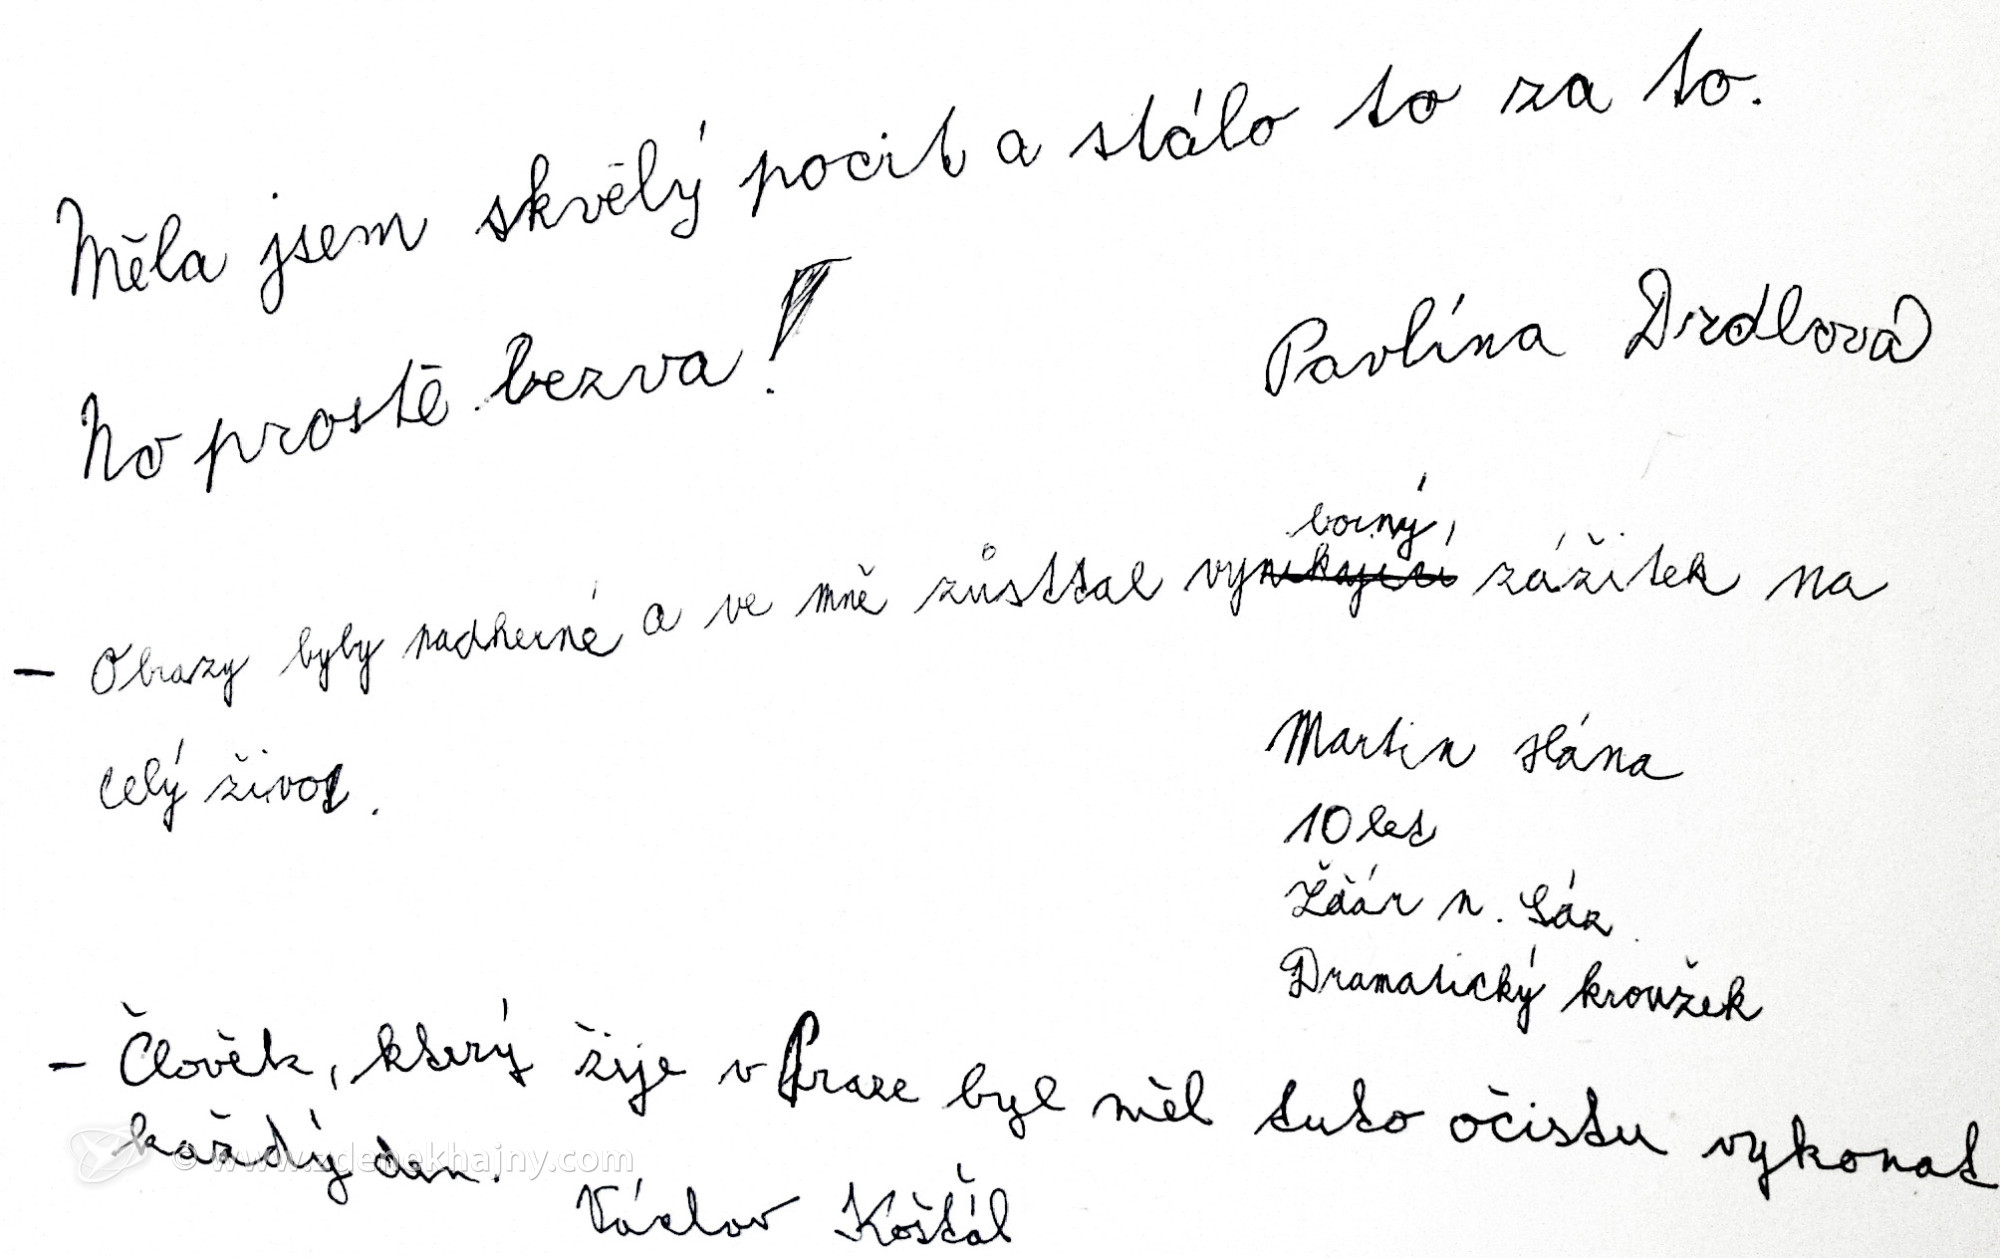 Měla jsem skvělý pocit a stálo to za to.
No prostě bezva!
Pavlína Drdlová
borný,
- Obrazy byly nadherné a ve mně zůsttal vynikající zážitek na
celý život.
Martin Hána
10 let
Žďár n. Sáz.
Dramatický kroužek
- Člověk, který žije v Praze byl měl tuto očistu vykonat
každý den.
© www.zdenekhajny.com
Václav Košťál